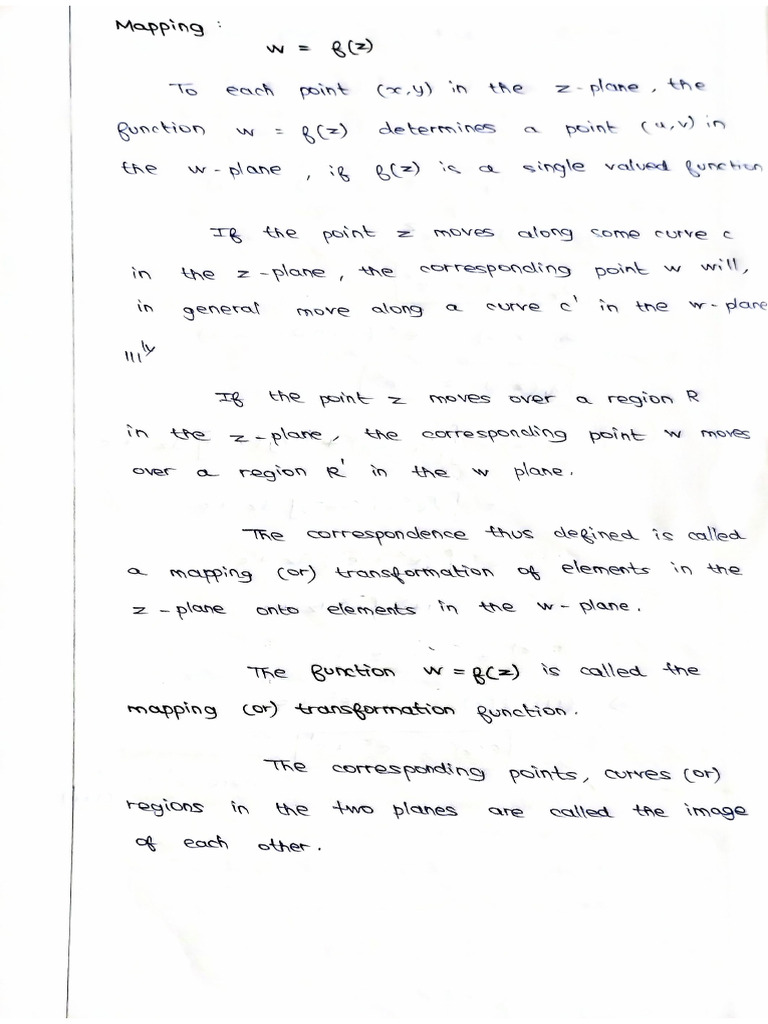 Mapping :
w = f(z)
To each point (x,y) in the z-plane, the
function w = f(z) determines a point (u,v) in
the w-plane, if f(z) is a single valued function
If the point z moves along some curve c
in the z-plane, the corresponding point w will,
in general move along a curve c' in the w-plane
|||ly
If the point z moves over a region R
in the z-plane, the corresponding point w moves
over a region R' in the w plane.
The correspondence thus defined is called
a mapping (or) transformation of elements in the
z-plane onto elements in the w-plane.
The function w = f(z) is called the
mapping (or) transformation function.
The corresponding points, curves (or)
regions in the two planes are called the image
of each other.